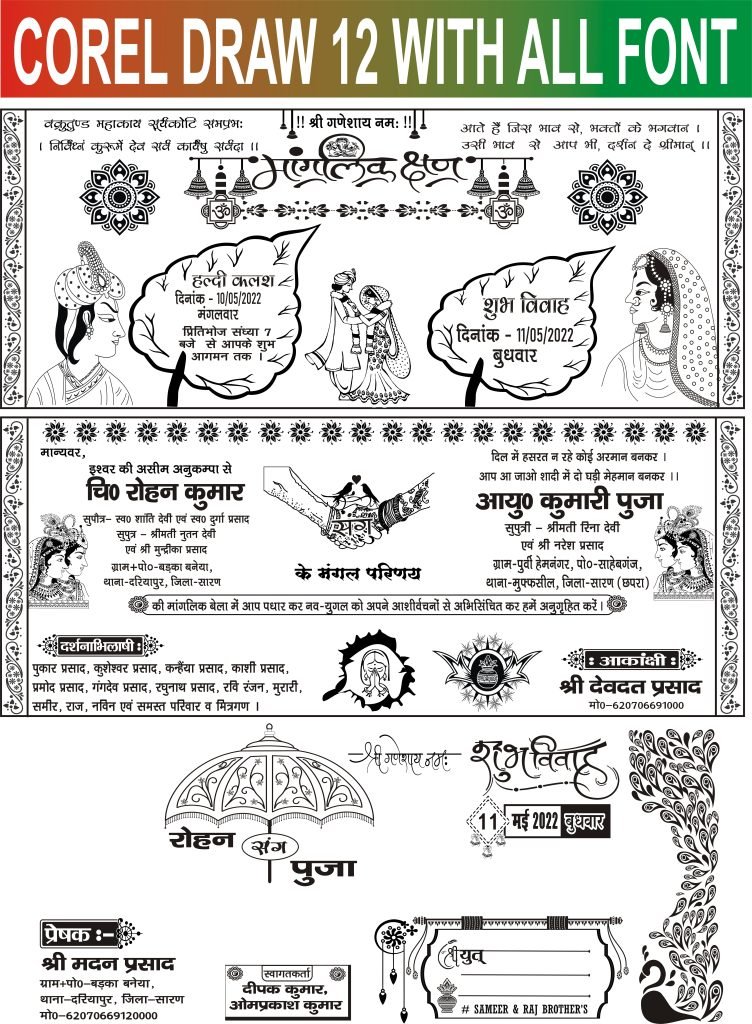 COREL DRAW 12 WITH ALL FONT
वक्रतुण्ड महाकाय सूर्यकोटि समप्रभः
। निर्विघ्नं कुरूमें देव सर्व कार्येषु सर्वदा ।।
!! श्री गणेशाय नमः !!
आते हैं जिस भाव से, भक्तों के भगवान ।
उसी भाव से आप भी, दर्शन दे श्रीमान् ।।
मांगलिक क्षण
ॐ
ॐ
हल्दी कलश
दिनांक - 10/05/2022
मंगलवार
प्रितिभोज संध्या 7
बजे से आपके शुभ
आगमन तक ।
शुभ विवाह
दिनांक - 11/05/2022
बुधवार
मान्यवर,
इश्वर की असीम अनुकम्पा से
चि० रोहन कुमार
सुपौत्र- स्व० शांति देवी एवं स्व० दुर्गा प्रसाद
सुपुत्र - श्रीमती नुतन देवी
एवं श्री मुन्द्रीका प्रसाद
ग्राम+पो०-बड़का बनेया,
थाना-दरियापुर, जिला-सारण
संग
के मंगल परिणय
दिल में हसरत न रहे कोई अरमान बनकर ।
आप आ जाओ शादी में दो घड़ी मेहमान बनकर ।।
आयु० कुमारी पुजा
सुपुत्री - श्रीमती रिना देवी
एवं श्री नरेश प्रसाद
ग्राम-पुर्वी हेमनगर, पो०-साहेबगंज,
थाना-मुफ्फसील, जिला-सारण (छपरा)
की मांगलिक बेला में आप पधार कर नव-युगल को अपने आशीर्वचनों से अभिसिंचित कर हमें अनुगृहित करें ।
दर्शनाभिलाषी :
पुकार प्रसाद, कुशेश्वर प्रसाद, कन्हैंया प्रसाद, काशी प्रसाद,
प्रमोद प्रसाद, गंगदेव प्रसाद, रघुनाथ प्रसाद, रवि रंजन, मुरारी,
समीर, राज, नविन एवं समस्त परिवार व मित्रगण ।
: आकांक्षी :
श्री देवदत प्रसाद
मो०-620706691000
श्री गणेशाय नमः
शुभ विवाह
11 मई 2022 बुधवार
रोहन
संग
पुजा
प्रेषक :-
श्री मदन प्रसाद
ग्राम+पो०-बड़का बनेया,
थाना-दरियापुर, जिला-सारण
मो०-62070669120000
स्वागतकर्ता
दीपक कुमार,
ओमप्रकाश कुमार
श्रीयुत्
# SAMEER & RAJ BROTHER'S